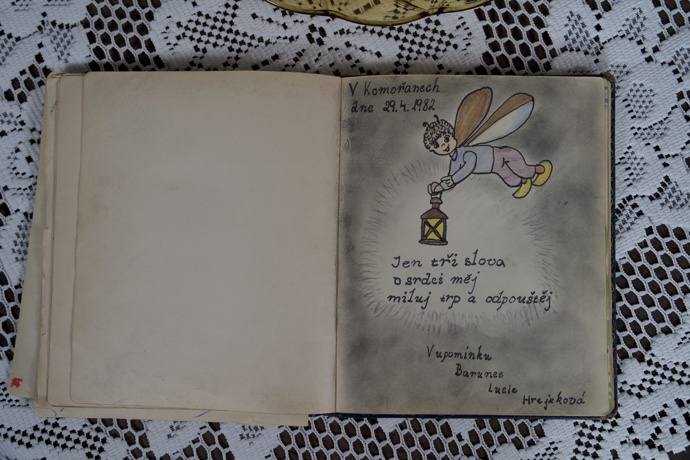 V Komořanech
dne 29.4.1982
Jen tři slova
v srdci měj
miluj trp a odpouštěj
V upomínku
Barunce
Lucie
Hrejsková